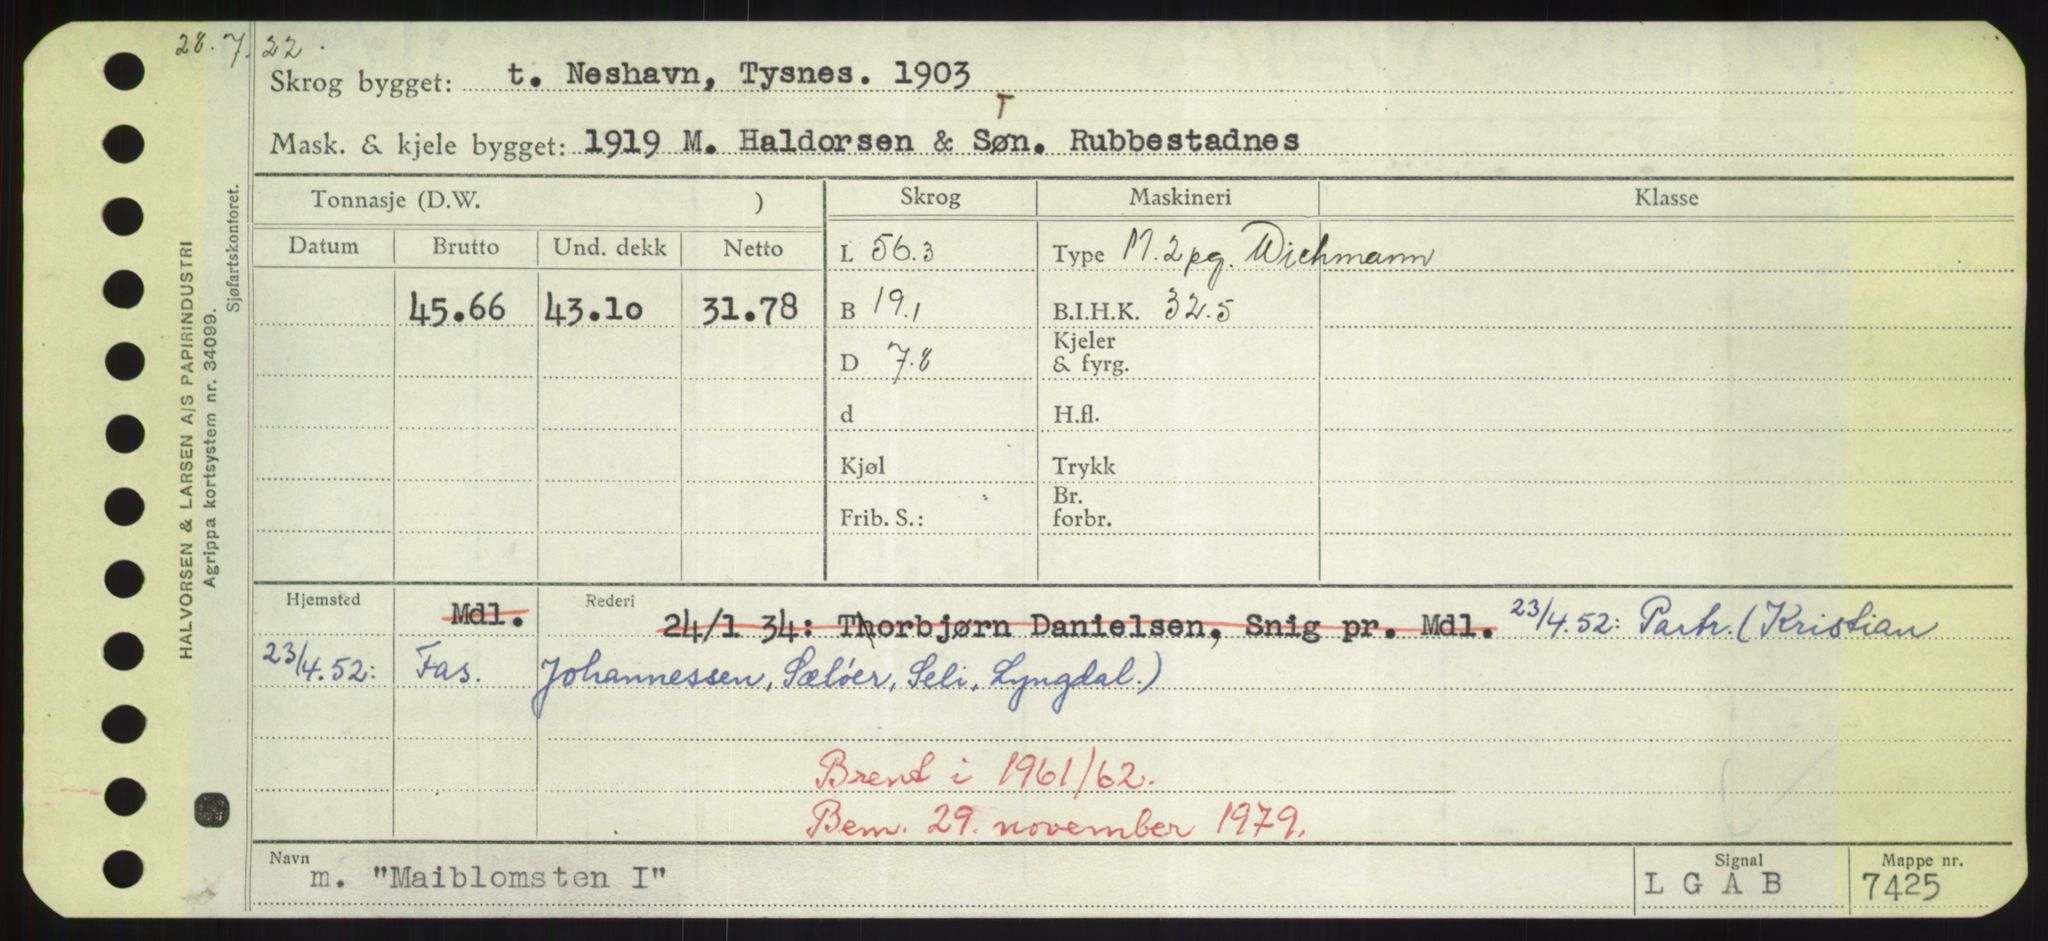 28.7.22.
Skrog bygget: t. Neshavn, Tysnes. 1903
T
Mask. & kjele bygget: 1919 M. Haldorsen & Søn. Rubbestadnes
Tonnasje (D.W. ) Skrog Maskineri Klasse
Datum Brutto Und. dekk Netto L 56.3 Type M. 2 pg. Wichmann
45.66 43.10 31.78 B 19.1 B.I.H.K. 32.5
D 7.8 Kjeler & fyrg.
d H.fl.
Kjøl Trykk
Frib. S.: Br. forbr.
Hjemsted Mdl. Rederi 24/1 34: Thorbjørn Danielsen, Snig pr. Mdl. 23/4.52: Partr. (Kristian
23/4.52: Fas. Johannessen, Sæløer, Seli, Lyngdal.)
Brent i 1961/62.
Bem. 29. november 1979.
Navn m. "Maiblomsten I" Signal LGAB Mappe nr. 7425
HALVORSEN & LARSEN A/S PAPIRINDUSTRI
Agrippa kortsystem nr. 34099.
Sjøfartskontoret.